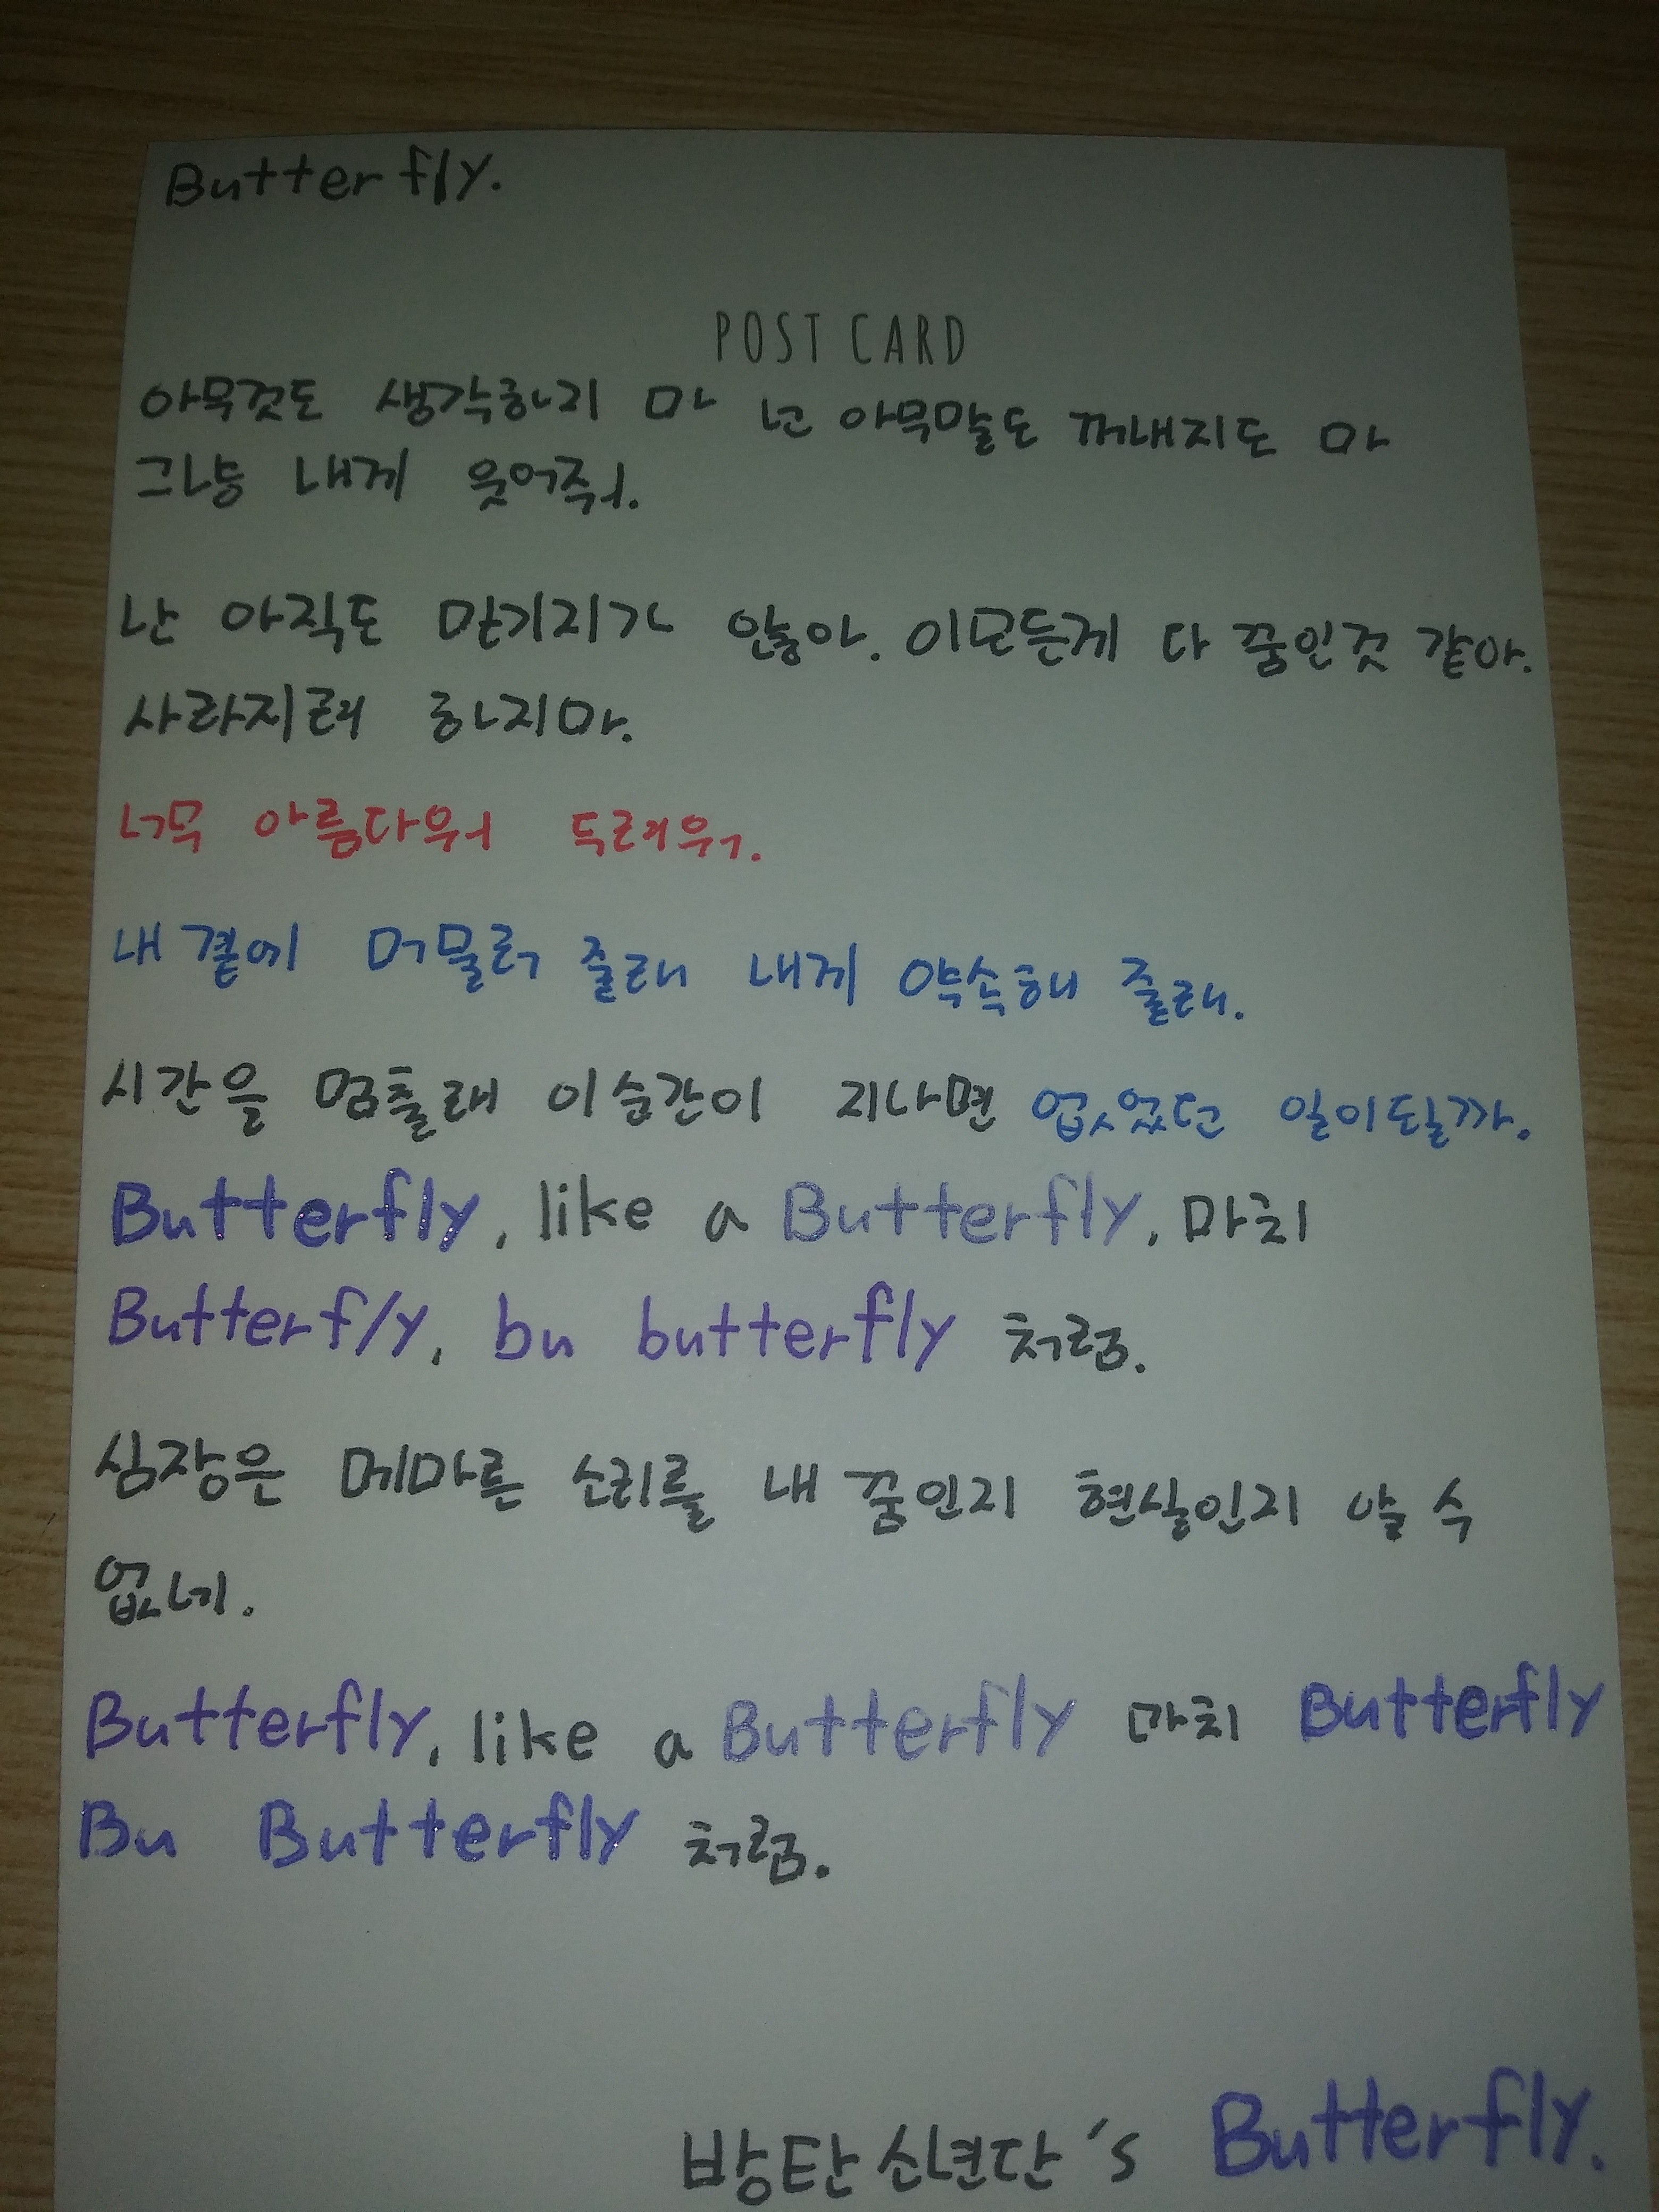 Butterfly.
POST CARD
아무것도 생각하지 마 넌 아무말도 꺼내지도 마
그냥 내게 웃어줘.
난 아직도 믿기지가 않아. 이모든게 다 꿈인것 같아.
사라지려 하지마.
너무 아름다워 두려워.
내 곁에 머물러 줄래 내게 약속해 줄래.
시간을 멈출래 이순간이 지나면 없었던 일이될까.
Butterfly, like a Butterfly, 마치
Butterfly, bu butterfly 처럼.
심장은 메마른 소리를 내 꿈인지 현실인지 알 수
없네.
Butterfly, like a Butterfly 마치 Butterfly
Bu Butterfly 처럼.
방탄소년단's Butterfly.